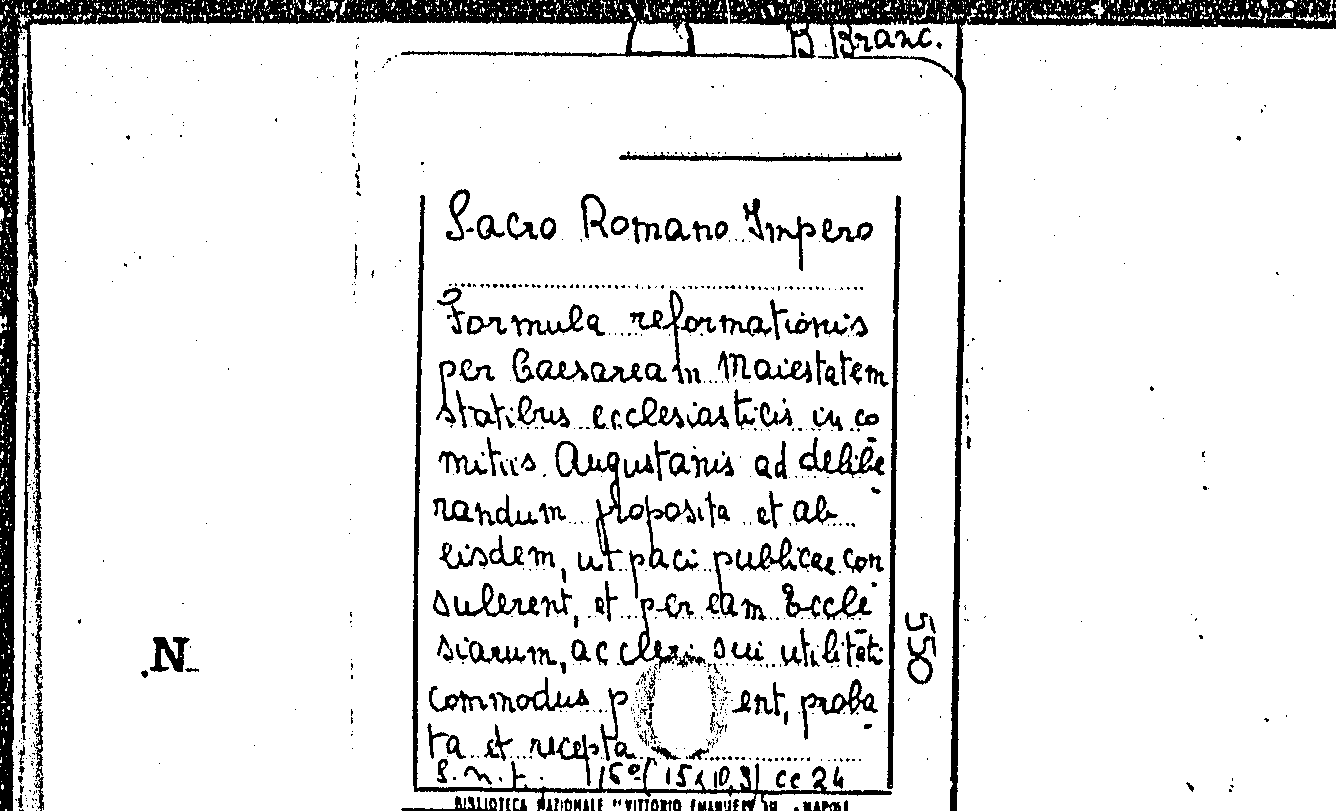 B. Branc.
Sacro Romano Impero
Formula reformationis
per Caesaream Maiestatem
statibus ecclesiasticis in co
mitiis Augustanis ad delibe
randum proposita et ab
eisdem, ut paci publicae con
sulerent, et per eam Eccle
siarum, ac cleri sui utilitati
commodus p ent, proba
ta et recepta
S. n. t. 16º (15x10,3) cc 24
550
N
BIBLIOTECA NAZIONALE "VITTORIO EMANUELE III" - NAPOLI